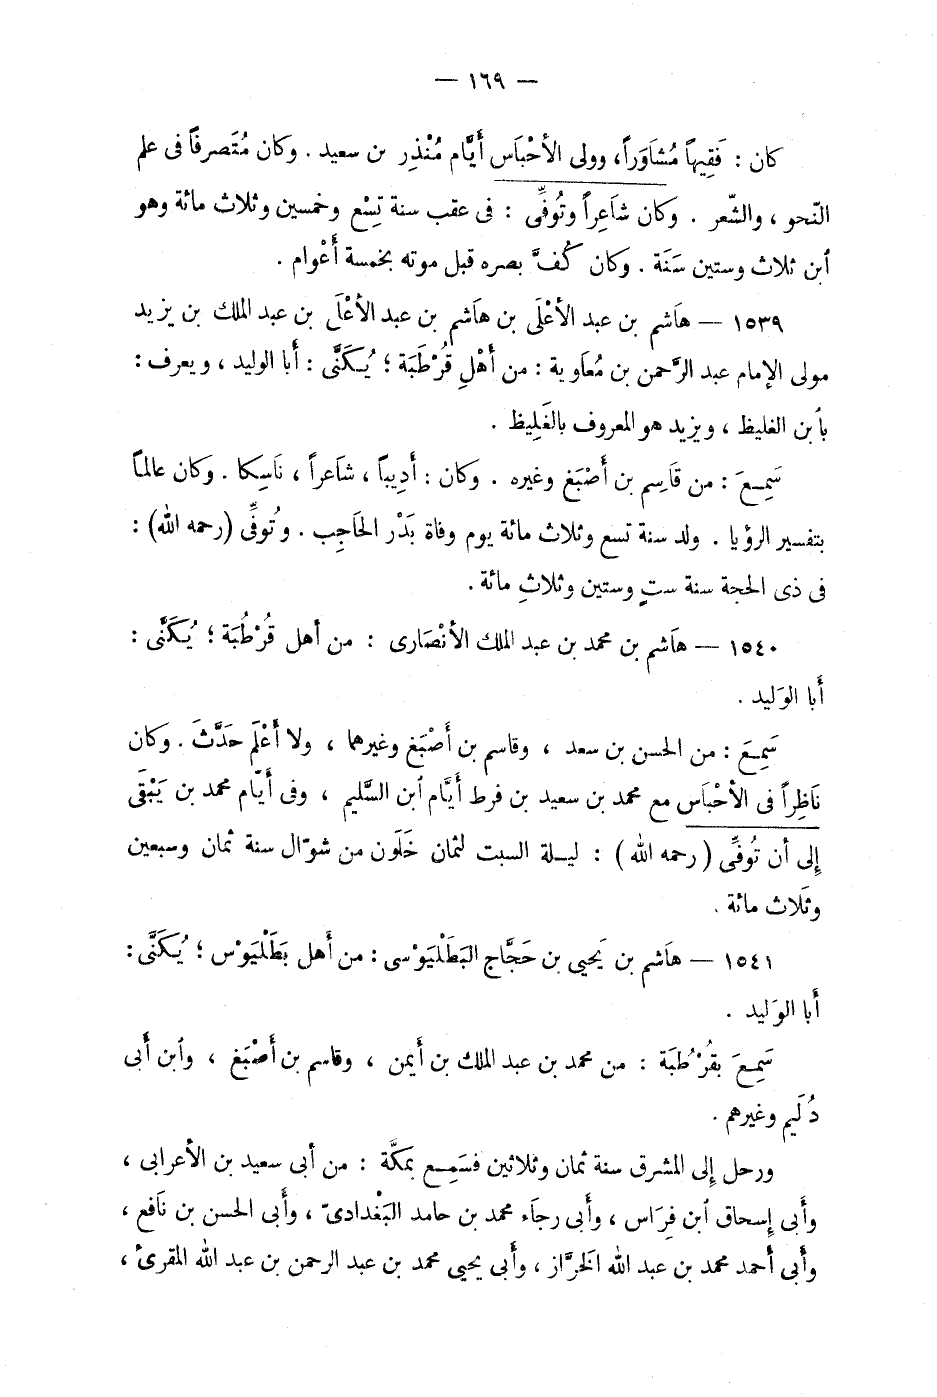 — ١٦٩ —
كان : فَقِيهاً مُشَاوَراً، وولى الأحْبَاس أَيَّام مُنْذِر بن سعيد . وكان مُتَصرفاً فى علم
النّحو ، والشّعر . وكان شَاعِراً وتُوفِّى : فى عقب سنة تِسْع وخمسين وثلاث مائة وهو
ٱبن ثلاث وستين سَنَة . وكان كُفَّ بصره قبل موته بخمسة أَعْوام .
١٥٣٩ — هَاشم بن عبد الأعْلَى بن هاَشم بن عبد الأعْلَى بن عبد الملك بن يزيد
مولى الإمام عبد الرَّحمن بن مُعَاوية : من أَهْلِ قُرْطَبَة ؛ يُكَنَّى : أَبا الوليد ، ويعرف :
بٱبن الغليظ ، ويزيد هو المعروف بالغَلِيظ .
سَمِعَ : من قَاسِم بن أَصْبَغ وغيره . وكان : أَدِيباً ، شاَعراً ، نَاسِكا . وكان عالماً
بتفسير الرؤيا . ولد سنة تسع وثلاث مائة يوم وفاة بَدْر الحَاجِب . وتُوفِّى (رحمه الله) :
فى ذى الحجة سنة ستٍ وستين وثلاثِ مائة .
١٥٤٠ — هَاشم بن محمد بن عبد الملك الأنْصَارى : من أهل قُرْطُبَة ؛ يُكَنَّى :
أَبا الوَليد .
سَمِعَ : من الحسن بن سعد ، وقاسم بن أَصْبَغ وغيرهما ، ولا أَعْلَم حَدَّثَ . وكان
نَاظِراً فى الأحْبَاس مع محمد بن سعيد بن فرط أَيَّام ٱبن السَّليم ، وفى أَيّام محمد بن يَبْقَى
إِلى أن تُوفِّى ( رحمه الله ) : ليلة السبت لثمان خَلَون من شوّال سنة ثمان وسبعين
وثَلاث مائة .
١٥٤١ — هَاشم بن يَحيى بن حَجَّاج البَطَلْيَوْسى : من أَهل بَطَلْيَوْس ؛ يُكَنَّى :
أَبا الوَليد .
سَمِعَ بقُرْطُبَة : من محمد بن عبد الملك بن أَيمن ، وقاسم بن أَصْبَغ ، وٱبن أَبى
دُلَيم وغيرهم .
ورحل إِلى المشرق سنة ثمان وثلاثين فسَمِع بمَكَّة : من أَبى سعيد بن الأعرابى ،
وأَبى إِسحاق ٱبن فِرَاس ، وأَبى رجاَء محمد بن حامد البَغْدادىّ ، وأَبى الحسن بن نَافع ،
وأَبى أَحمد محمد بن عبد الله الخَرَّاز ، وأَبى يحيى محمد بن عبد الرحمن بن عبد الله المقرئ ،